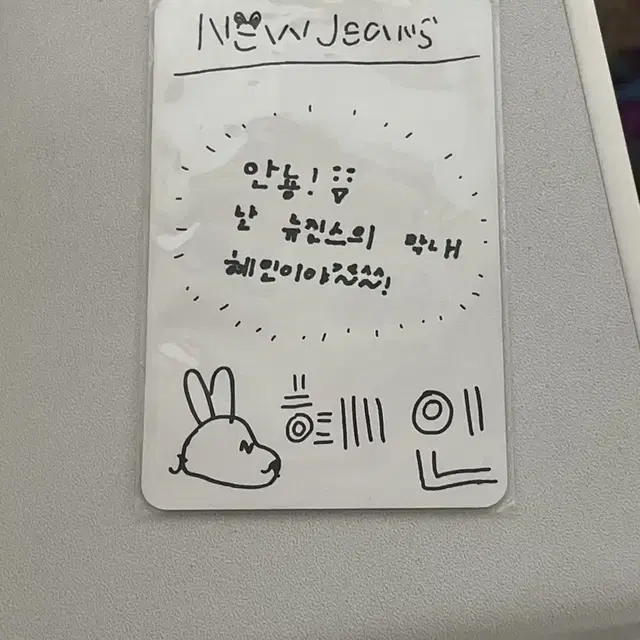 NEW Jeans
안뇽!
난 뉴진스의 막내
혜인이야~~~!
혜인